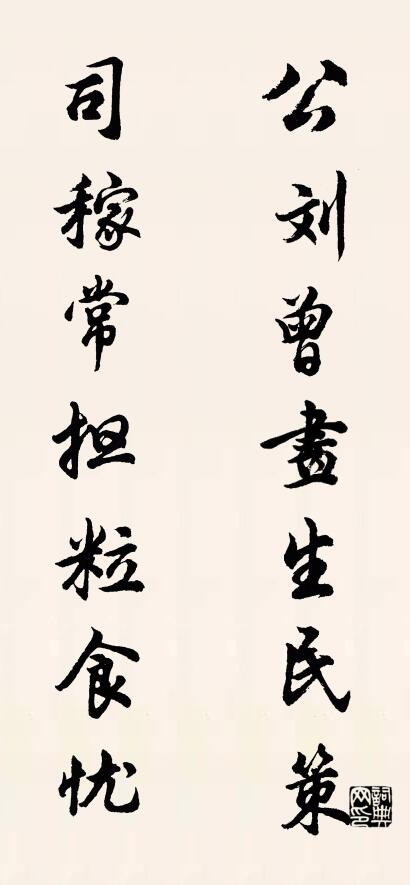 公刘曾畫生民策
司稼常担粒食忧
詞典网印